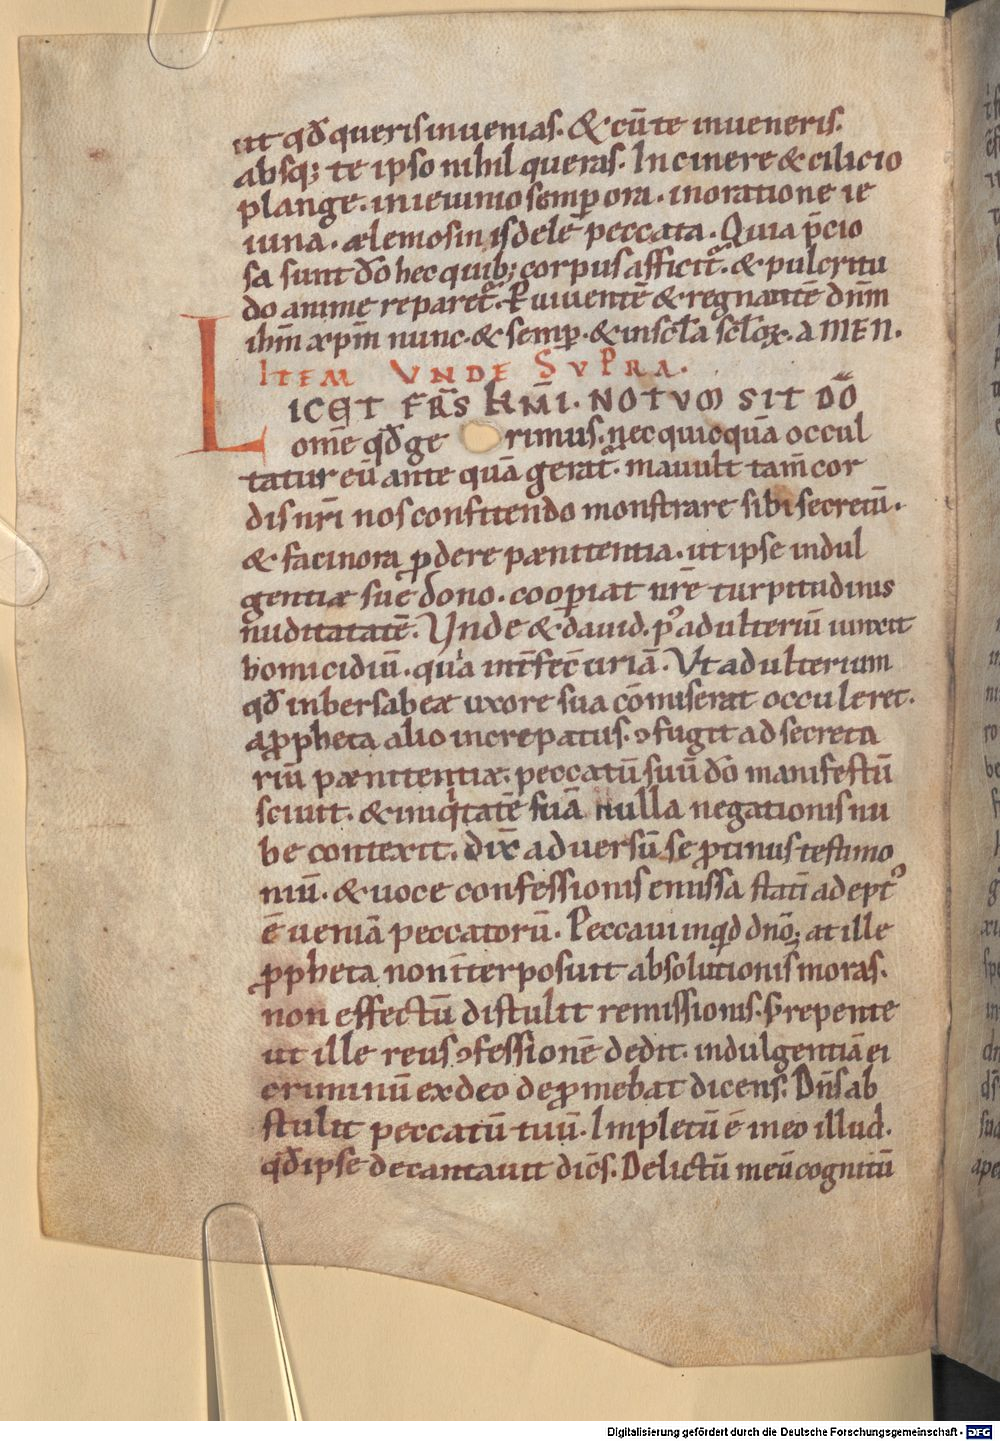 ut qđ queris inuenias. & cū te inueneris.
absq; te ipso nihil queras. In cinere & cilicio
plange. in ieiunio semꝑ ora. in oratione ie
iuna. ælemosinis dele peccata. Quia p̄cio
sa sunt dō hec quib; corpus afficit᷑. & pulcritu
do anime reparet᷑. P uiuentē & regnantē dnm̄
ihm̄ xp̄m nunc. & semꝑ. & in scl̄a scl̄oꝝ. AMEN.
ITEM VNDE SVPRA.
LICET FRS̄ KM̄I. NOTVM SIT DŌ
om̄e qđ ge rimus. nec quicquā occul
tatur eū ante quā gerat᷑. mauult tam̄ cor
dis nr̄i nos confitendo monstrare sibi secretū.
& facinora ꝓdere pænitentia. ut ipse indul
gentiæ sue dono. cooꝑiat nr̄e turpitudinis
nuditatatē. Vnde & dauid. p᷒ adulteriū iunxit
homicidiū. quia int̄fec̄ uriā. Vt adulterium
qđ in bersabeæ uxore sua cōmiserat occuleret.
a ꝓpheta alio increpatus. ꝯfugit ad secreta
riū pænitentiæ. peccatū suū dō manifestū
sciuit. & iniqͥtatē suā nulla negationis nu
be contexit. dix̄ aduersū se ꝓtinus testimo
niū. & uoce confessionis emissa statī adept᷒
ē ueniā peccatorū. Peccaui inqͥd dnō; at ille
ꝓpheta non īterposuit absolutionis moras.
non effectū distulit remissionis. S; repente
ut ille reus ꝯfessionē dedit. indulgentiā ei
criminū ex deo deꝓmebat dicens. Dn̄s ab
stulit peccatū tuū. Impletū ē in eo illud.
qđ ipse decantauit dic̄s. Delictū meū cognitū
Digitalisierung gefördert durch die Deutsche Forschungsgemeinschaft - DFG